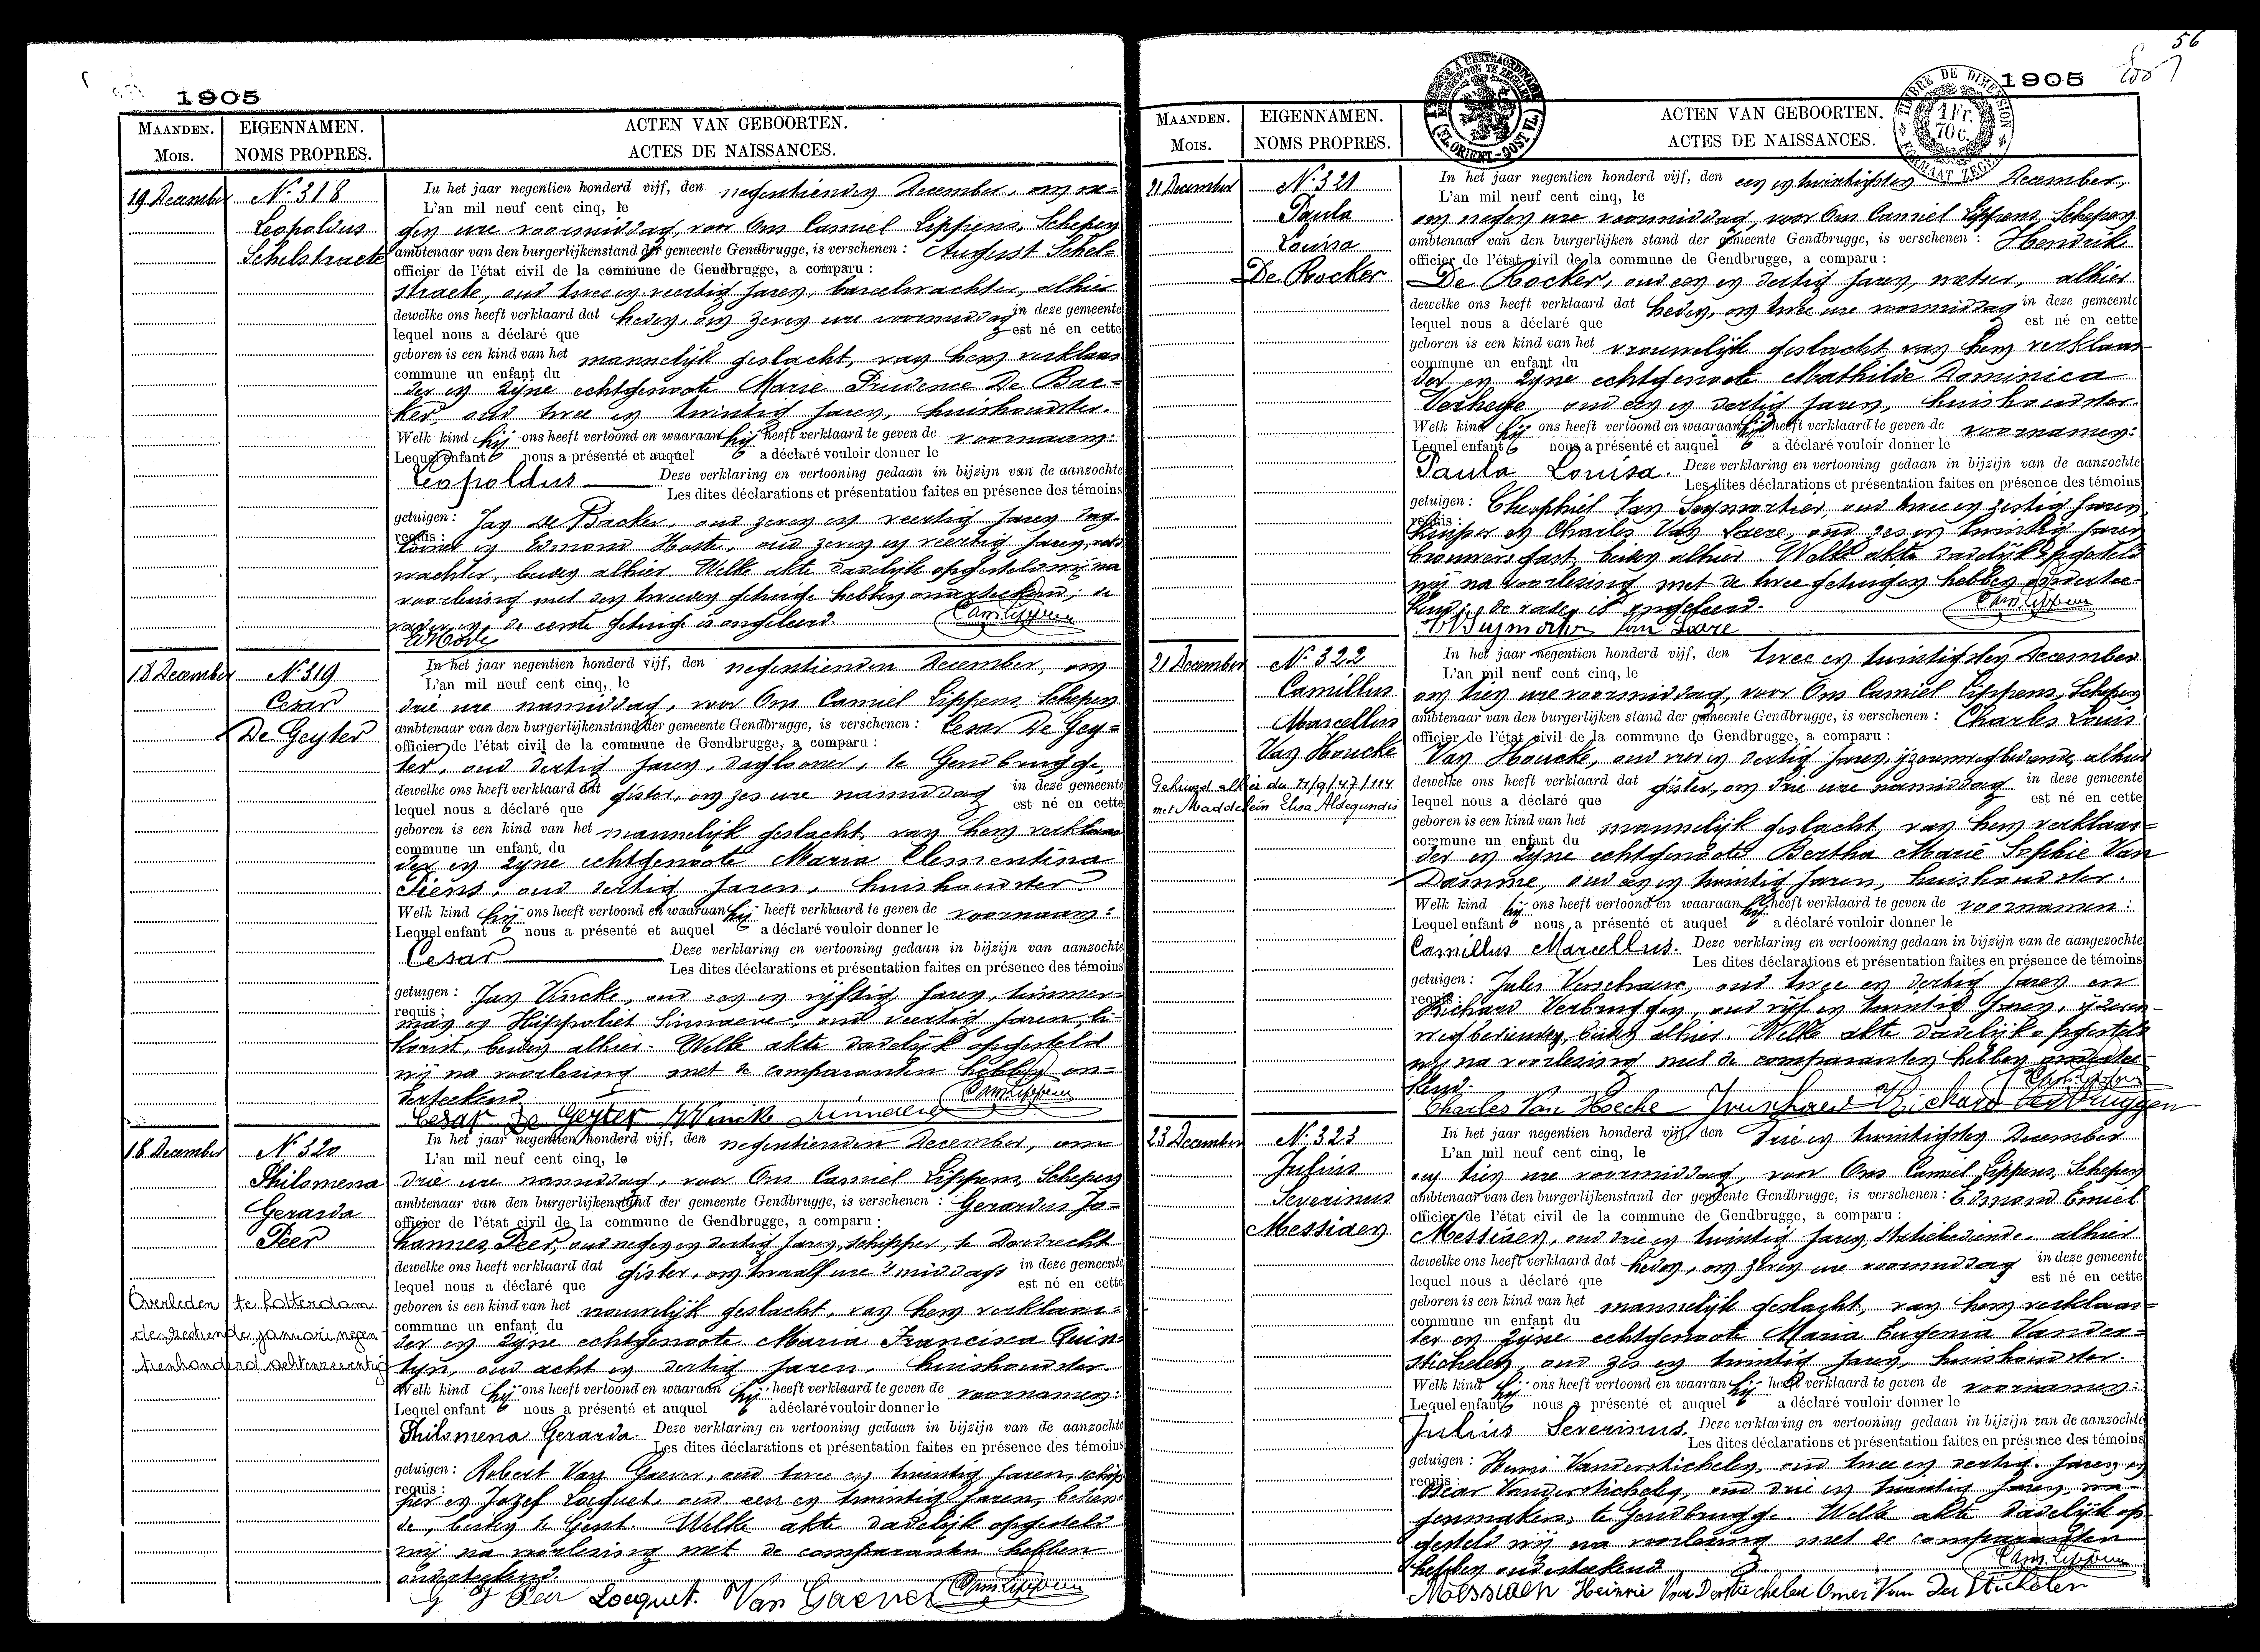 1905
MAANDEN.
Mois.
EIGENNAMEN.
NOMS PROPRES.
ACTEN VAN GEBOORTEN.
ACTES DE NAISSANCES.
19 December
N° 318
Leopoldus
Schelstraete
In het jaar negentien honderd vijf, den negentienden December, om ne-
L'an mil neuf cent cinq, le
gen ure voormiddag, voor Ons Camiel Lippens, Schepen
ambtenaar van den burgerlijkenstand der gemeente Gendbrugge, is verschenen : August Schel-
officier de l'état civil de la commune de Gendbrugge, a comparu :
straete, oud twee en veertig jaren, bareelwachter, alhier
dewelke ons heeft verklaard dat heden, om zeven ure voormiddag in deze gemeente
lequel nous a déclaré que est né en cette
geboren is een kind van het mannelijk geslacht, van hem verklaar-
commune un enfant du
der en zijne echtgenoote Marie Prudence De Bac-
ker, oud twee en twintig jaren, huishoudster.
Welk kind hij ons heeft vertoond en waaraan hij heeft verklaard te geven de voornaam:
Lequel enfant nous a présenté et auquel a déclaré vouloir donner le
Leopoldus Deze verklaring en vertooning gedaan in bijzijn van de aanzochte
Les dites déclarations et présentation faites en présence des témoins
getuigen : Jan De Backer, oud zeven en veertig jaren, dag-
requis :
looner en Edmond Hoste, oud zeven en veertig jaren, veld-
wachter, beiden alhier. Welke akte dadelijk opgesteld wij na
voorlezing met den tweeden getuige hebben onderteekend; de
vader en de eerste getuige is ongeleerd.
18 December
N° 319
Cesar
De Geyter
In het jaar negentien honderd vijf, den negentienden December, om
L'an mil neuf cent cinq, le
drie ure namiddag, voor Ons Camiel Lippens, Schepen
ambtenaar van den burgerlijkenstand der gemeente Gendbrugge, is verschenen : Cesar De Gey-
officier de l'état civil de la commune de Gendbrugge, a comparu :
ter, oud dertig jaren, daglooner, te Gendbrugge,
dewelke ons heeft verklaard dat gister, om zes ure namiddag in deze gemeente
lequel nous a déclaré que est né en cette
geboren is een kind van het mannelijk geslacht, van hem verklaar-
commune un enfant du
der en zijne echtgenoote Maria Clementina
Piens, oud dertig jaren, huishoudster.
Welk kind hij ons heeft vertoond en waaraan hij heeft verklaard te geven de voornaam:
Lequel enfant nous a présenté et auquel a déclaré vouloir donner le
Cesar Deze verklaring en vertooning gedaan in bijzijn van aanzochte
Les dites déclarations et présentation faites en présence des témoins
getuigen : Jan Vincke, oud een en vijftig jaren, timmer-
requis :
man en Hippoliet Sinnaeve, oud veertig jaren,
beiden alhier. Welke akte dadelijk opgesteld
wij na voorlezing met de comparanten hebben on-
derteekend
Cesar De Geyter Vincke Sinnaeve
18 December
N° 320
Philomena
Gerarda
Peer
Overleden te Rotterdam
de zestiende januari negen-
tienhonderd achtenzeventig
In het jaar negentien honderd vijf, den negentienden December, om
L'an mil neuf cent cinq, le
drie ure namiddag, voor Ons Camiel Lippens, Schepen
ambtenaar van den burgerlijkenstand der gemeente Gendbrugge, is verschenen : Gerardus Jo-
officier de l'état civil de la commune de Gendbrugge, a comparu :
hannes Peer, oud negen en dertig jaren, schipper, te Dordrecht
dewelke ons heeft verklaard dat gister, om twaalf ure 's middags in deze gemeente
lequel nous a déclaré que est né en cette
geboren is een kind van het vrouwelijk geslacht, van hem verklaar-
commune un enfant du
der en zijne echtgenoote Maria Francisca Quin-
tyn, oud acht en dertig jaren, huishoudster.
Welk kind hij ons heeft vertoond en waaraan hij heeft verklaard te geven de voornamen:
Lequel enfant nous a présenté et auquel a déclaré vouloir donner le
Philomena Gerarda. Deze verklaring en vertooning gedaan in bijzijn van de aanzochte
Les dites déclarations et présentation faites en présence des témoins
getuigen : Robert Van Gaever, oud twee en twintig jaren, schip-
requis :
per en Jozef Locquet, oud een en twintig jaren, bedien-
de, beiden te Gent. Welke akte dadelijk opgesteld
wij na voorlezing met de comparanten hebben
onderteekend.
G J Peer Locquet. Van Gaever
56
1905
TIMBRE DE DIMENSION
1 Fr.
70 c.
FORMAAT ZEGEL
MAANDEN.
Mois.
EIGENNAMEN.
NOMS PROPRES.
ACTEN VAN GEBOORTEN.
ACTES DE NAISSANCES.
21 December
N° 321
Paula
Louisa
De Rocker
In het jaar negentien honderd vijf, den een en twintigsten December,
L'an mil neuf cent cinq, le
om negen ure voormiddag, voor Ons Camiel Lippens, Schepen
ambtenaar van den burgerlijken stand der gemeente Gendbrugge, is verschenen : Hendrik
officier de l'état civil de la commune de Gendbrugge, a comparu :
De Rocker, oud een en dertig jaren, metser, alhier
dewelke ons heeft verklaard dat heden, om twee ure voormiddag in deze gemeente
lequel nous a déclaré que est né en cette
geboren is een kind van het vrouwelijk geslacht van hem verklaar-
commune un enfant du
der en zijne echtgenoote Mathilde Dominica
Verhege, oud een en dertig jaren, huishoudster.
Welk kind hij ons heeft vertoond en waaraan hij heeft verklaard te geven de voornamen:
Lequel enfant nous a présenté et auquel a déclaré vouloir donner le
Paula Louisa. Deze verklaring en vertooning gedaan in bijzijn van de aanzochte
Les dites déclarations et présentation faites en présence des témoins
getuigen : Theophiel Van Seymortier, oud twee en zestig jaren
requis :
kuiper en Charles Van Laere, oud zes en twintig jaren
brouwersgast, beiden alhier. Welke akte dadelijk opgesteld
wij na voorlezing met de twee getuigen hebben onderteekend; de vader is ongeleerd.
Van Laere
21 December
N° 322
Camillus
Marcellus
Van Houcke
Gehuwd alhier du 11/9/47/114
met Maddelein Elisa Aldegundis
In het jaar negentien honderd vijf, den twee en twintigsten December
L'an mil neuf cent cinq, le
om tien ure voormiddag, voor Ons Camiel Lippens, Schepen
ambtenaar van den burgerlijken stand der gemeente Gendbrugge, is verschenen : Charles Louis
officier de l'état civil de la commune de Gendbrugge, a comparu :
Van Houcke, oud vier en dertig jaren, ijzerenwegbediende, alhier
dewelke ons heeft verklaard dat gister, om drie ure namiddag in deze gemeente
lequel nous a déclaré que est né en cette
geboren is een kind van het mannelijk geslacht van hem verklaar-
commune un enfant du
der en zijne echtgenoote Bertha Marie Sophie Van
Damme, oud een en twintig jaren, huishoudster.
Welk kind hij ons heeft vertoond en waaraan hij heeft verklaard te geven de voornamen:
Lequel enfant nous a présenté et auquel a déclaré vouloir donner le
Camillus Marcellus. Deze verklaring en vertooning gedaan in bijzijn van de aangezochte
Les dites déclarations et présentation faites en présence de témoins
getuigen : Jules Verschaere, oud twee en dertig jaren en
requis :
Richard Verbruggen, oud vijf en twintig jaren, ijzeren-
wegbedienden, beiden alhier. Welke akte dadelijk opgesteld
wij na voorlezing met de comparanten hebben onderteekend.
Charles Van Hoecke Richard Verbruggen
23 December
N° 323
Julius
Severinus
Messiaen
In het jaar negentien honderd vijf, den drie en twintigsten December
L'an mil neuf cent cinq, le
om tien ure voormiddag, voor Ons Camiel Lippens, Schepen
ambtenaar van den burgerlijkenstand der gemeente Gendbrugge, is verschenen : Edmond Emiel
officier de l'état civil de la commune de Gendbrugge, a comparu :
Messiaen, oud drie en twintig jaren, statiebediende, alhier
dewelke ons heeft verklaard dat heden, om zeven ure voormiddag in deze gemeente
lequel nous a déclaré que est né en cette
geboren is een kind van het mannelijk geslacht, van hem verklaar-
commune un enfant du
der en zijne echtgenoote Maria Eugenia Vander-
stichelen, oud zes en twintig jaren, huishoudster.
Welk kind hij ons heeft vertoond en waaraan hij heeft verklaard te geven de voornamen:
Lequel enfant nous a présenté et auquel a déclaré vouloir donner le
Julius Severinus. Deze verklaring en vertooning gedaan in bijzijn van de aanzochte
Les dites déclarations et présentation faites en présence des témoins
getuigen : Henri Vanderstichelen, oud twee en dertig jaren en
requis :
Vanderstichelen, oud drie en twintig jaren, wa-
genmakers, te Gendbrugge. Welke akte dadelijk op-
gesteld wij na voorlezing met de comparanten
hebben onderteekend
Messiaen Heinrie Van Derstichelen Omer Van Der Stichelen